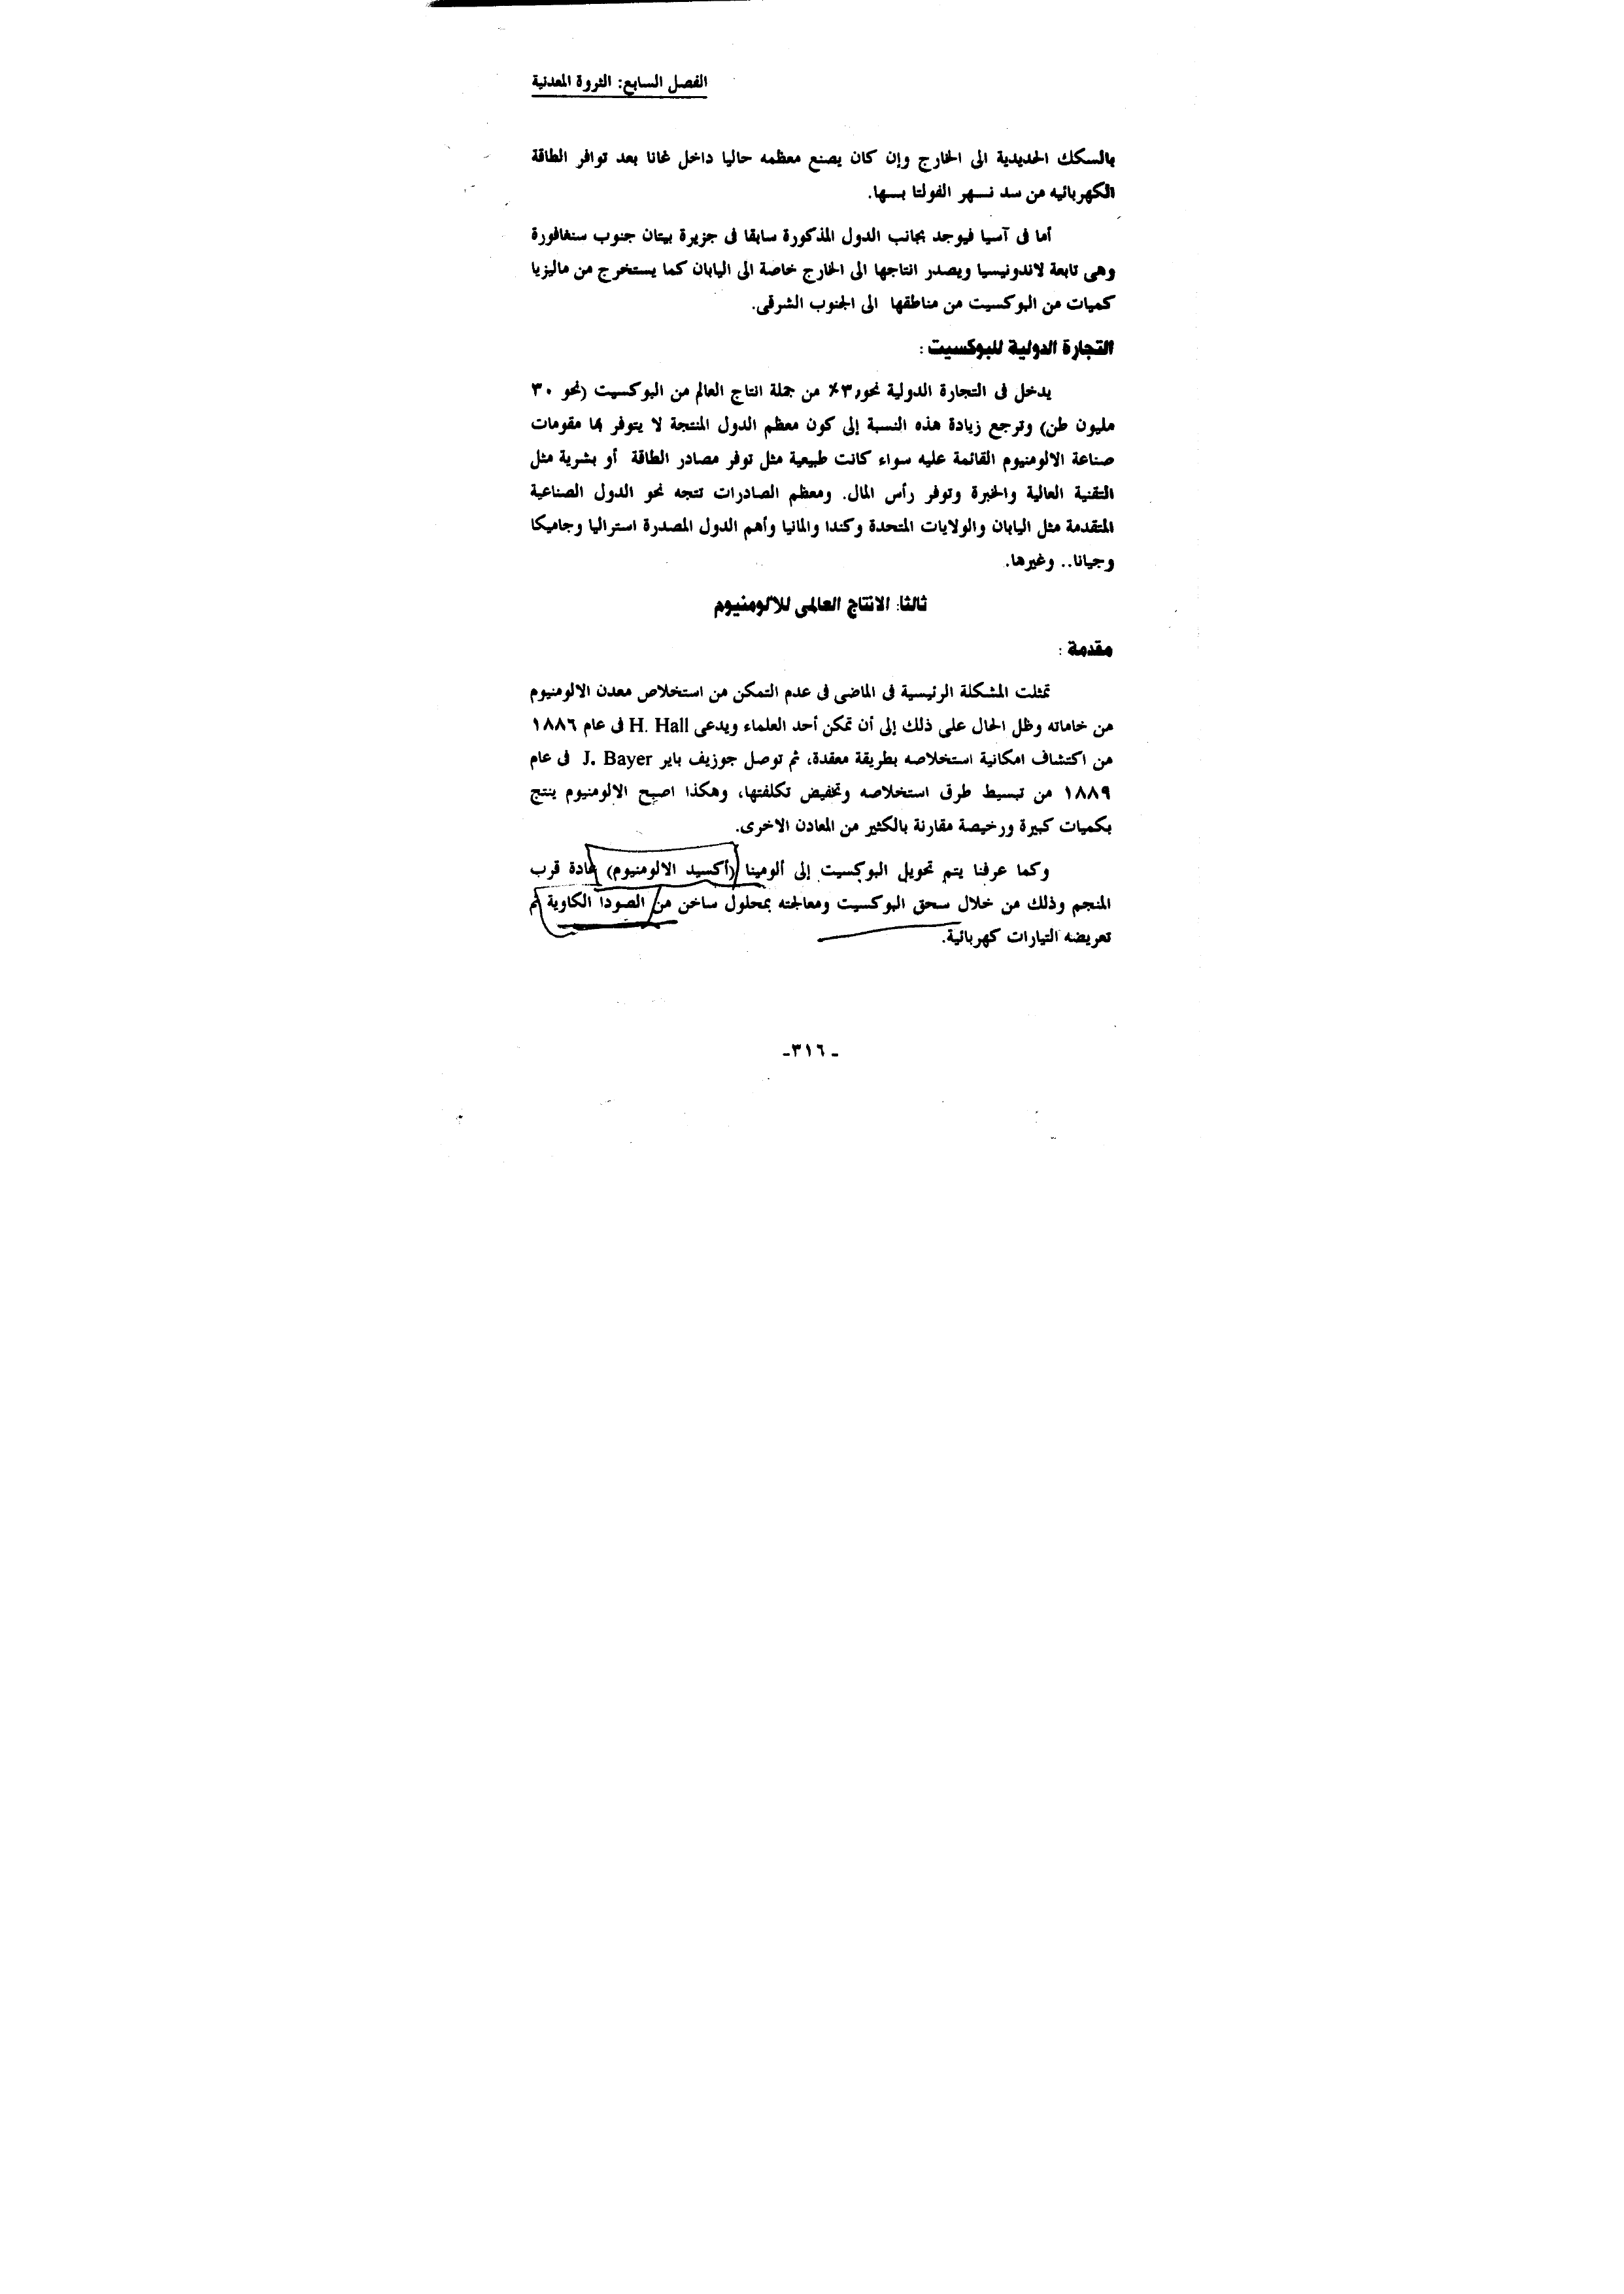 الفصل السابع: الثروة المعدنية
بالسكك الحديدية الى الخارج وإن كان يصنع معظمه حاليا داخل غانا بعد توافر الطاقة
الكهربائيه من سد نسهر الفولتا بسها.
أما فى آسيا فيوجد بجانب الدول المذكورة سابقا فى جزيرة بيتان جنوب سنغافورة
وهى تابعة لاندونيسيا ويصدر انتاجها الى الخارج خاصة الى اليابان كما يستخرج من ماليزيا
كميات من البوكسيت من مناطقها الى الجنوب الشرقى.
التجارة الدولية للبوكسيت :
يدخل فى التجارة الدولية نحو ٪ من جملة انتاج العالم من البوكسيت (نحو ٣٠
مليون طن) وترجع زيادة هذه النسبة إلى كون معظم الدول المنتجة لا يتوفر بها مقومات
صناعة الالومنيوم القائمة عليه سواء كانت طبيعية مثل توفر مصادر الطاقة أو بشرية مثل
التقنية العالية والخبرة وتوفر رأس المال. ومعظم الصادرات تتجه نحو الدول الصناعية
المتقدمة مثل اليابان والولايات المتحدة وكندا والمانيا وأهم الدول المصدرة استراليا وجاميكا
وجيانا.. وغيرها.
ثالثا: الانتاج العالمى للالومنيوم
مقدمة :
تمثلت المشكلة الرئيسية فى الماضى فى عدم التمكن من استخلاص معدن الالومنيوم
من خاماته وظل الحال على ذلك إلى أن تمكن أحد العلماء ويدعى H. Hall فى عام ١٨٨٦
من اكتشاف امكانية استخلاصه بطريقة معقدة، ثم توصل جوزيف باير J. Bayer فى عام
١٨٨٩ من تبسيط طرق استخلاصه وتخفيض تكلفتها، وهكذا اصبح الالومنيوم ينتج
بكميات كبيرة ورخيصة مقارنة بالكثير من المعادن الاخرى.
وكما عرفنا يتم تحويل البوكسيت إلى ألومينا (أكسيد الالومنيوم) عادة قرب
المنجم وذلك من خلال سحق البوكسيت ومعالجته بمحلول ساخن من الصودا الكاوية ثم
تعريضه التيارات كهربائية.
ـ ٣١٦ـ